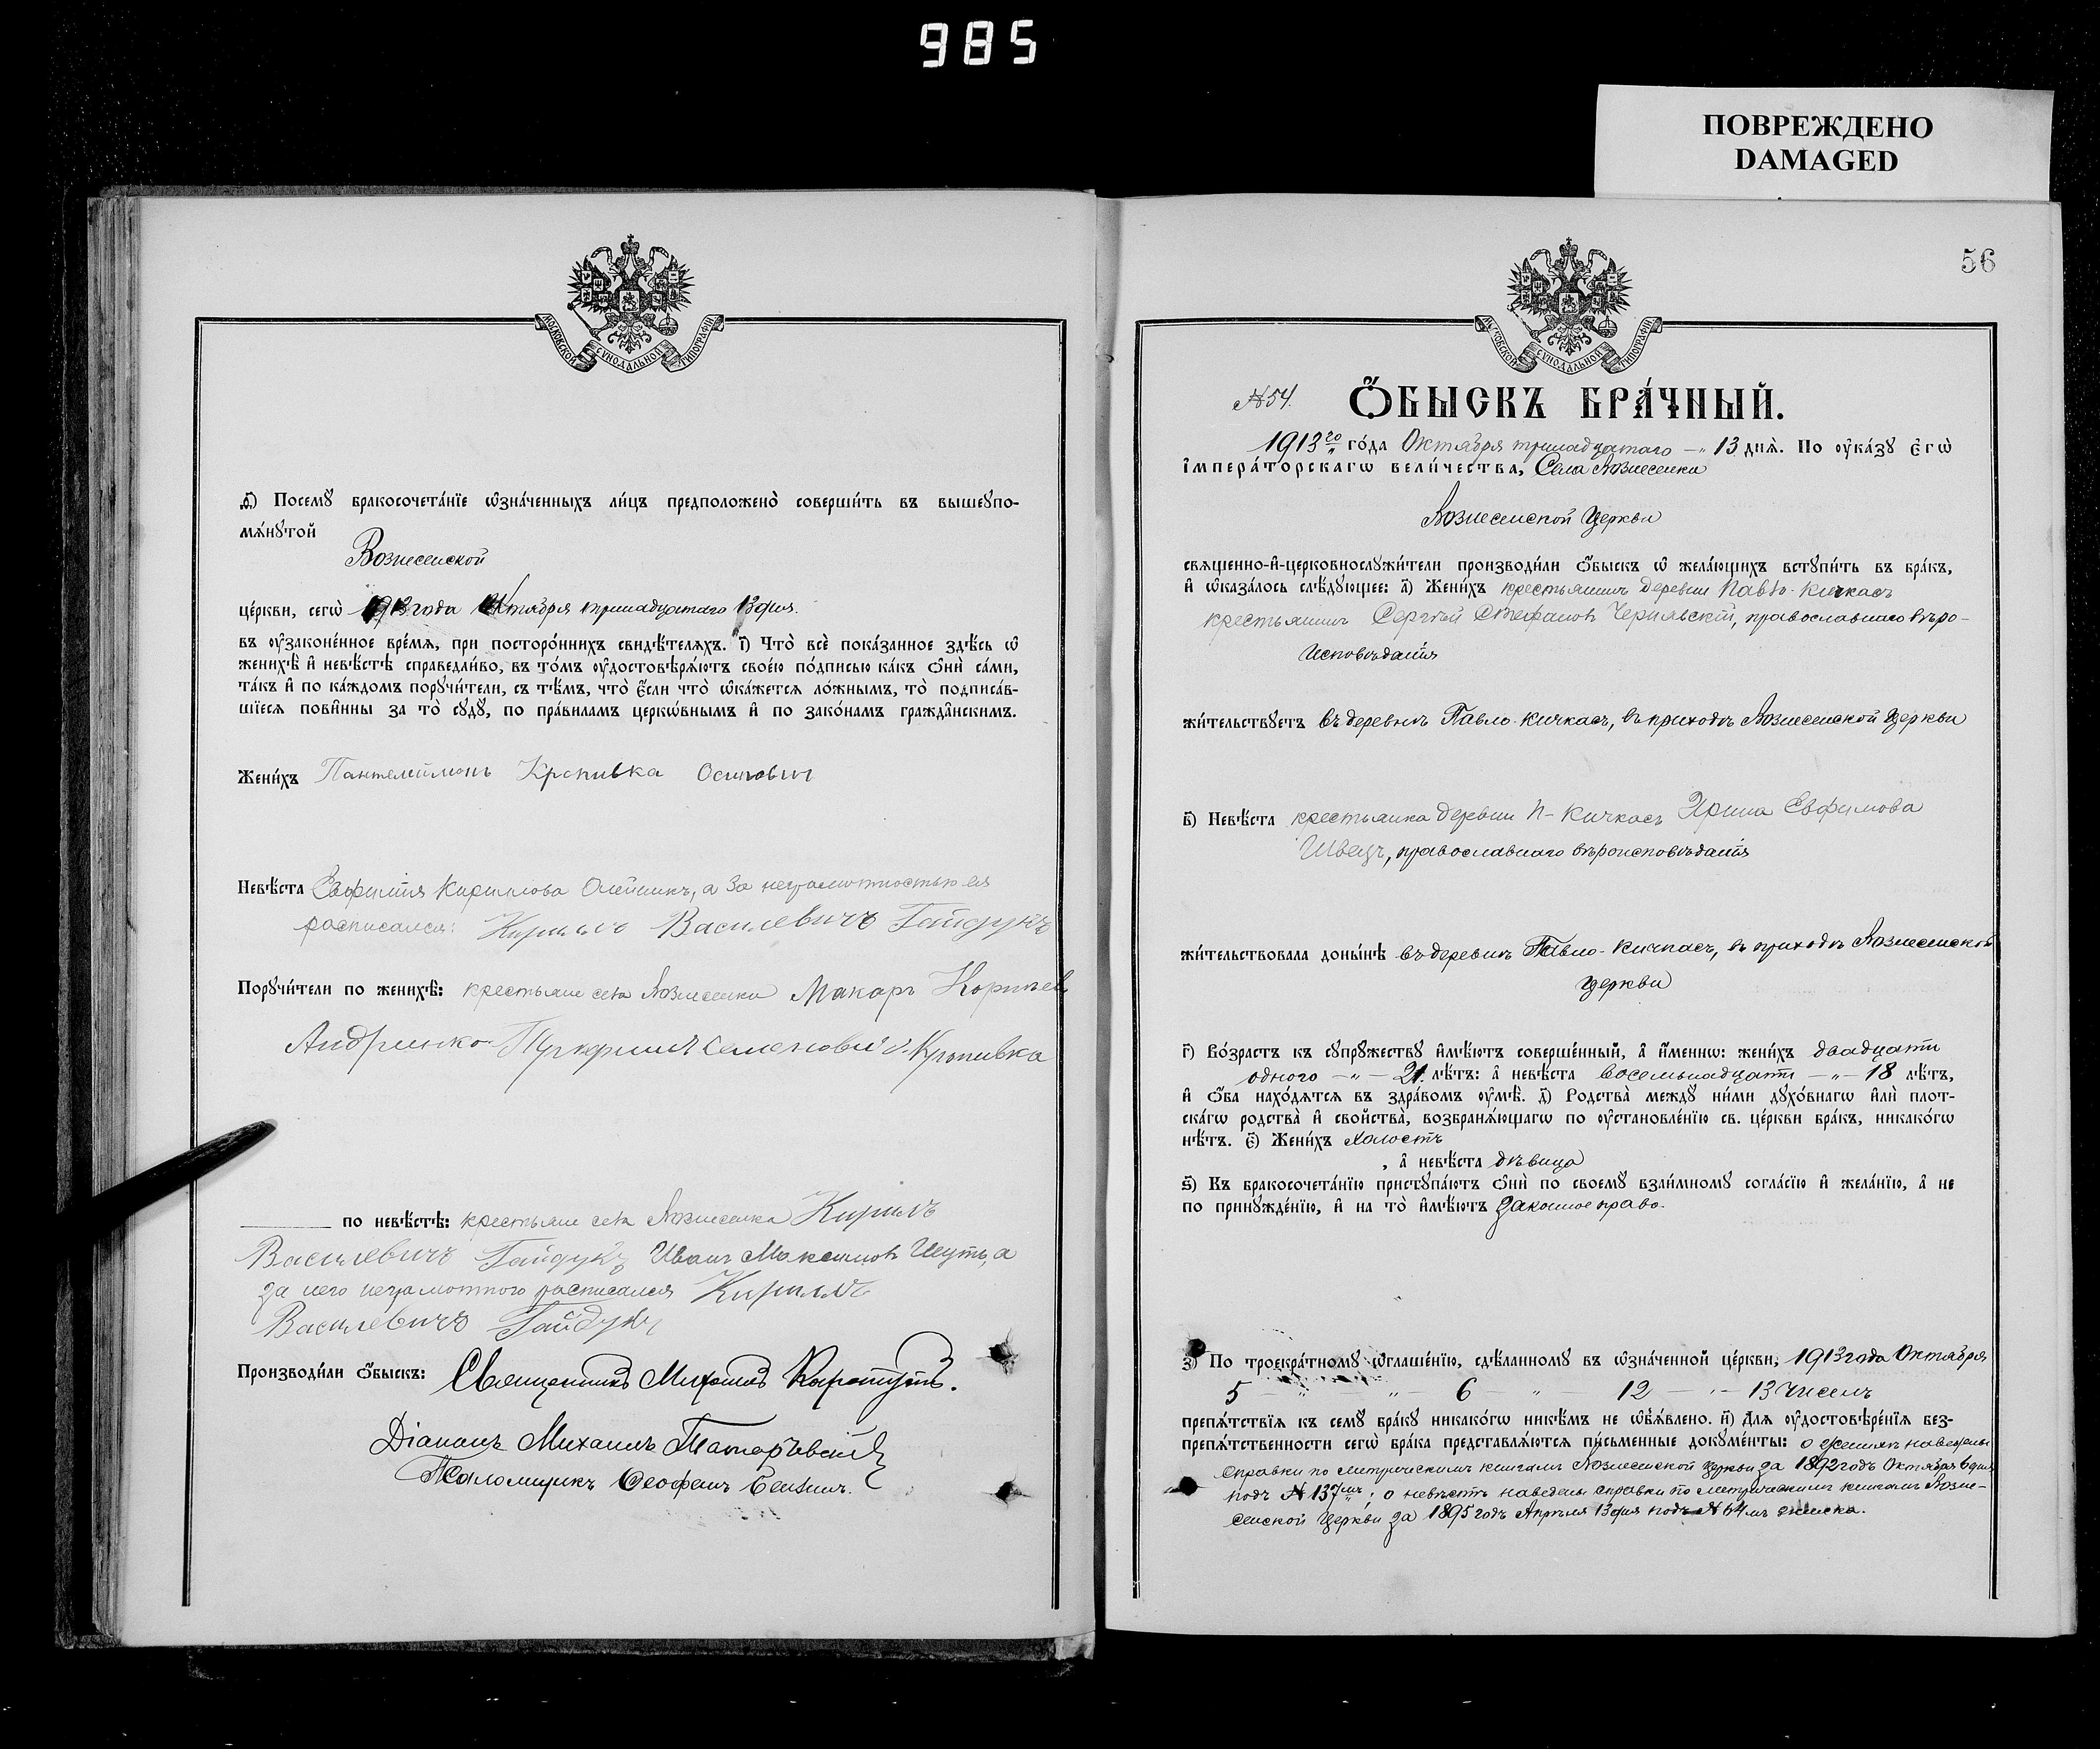 985
ПОВРЕЖДЕНО
DAMAGED
МОСКОВСКОЙ СѴНОДАЛЬНОЙ ТИПОГРАФІИ
д҃) Посемꙋ бракосочета́нїе ѡзна́ченныхъ ли́цъ предположено̀ соверши́ть въ вышеꙋпо-
мѧ́нꙋтой
Вознесенской
це́ркви, сегѡ̀ 1913 года Октября тринадцатаго 13 дня.
въ ᲂу҆зако́ненное вре́мѧ, при посторо́ннихъ свидѣ́телѧхъ. і҃) Что̀ всѐ пока́занное здѣ́сь ѡ҆
женихѣ̀ и҆ невѣ́стѣ справедли́во, въ то́мъ ᲂу҆достовѣрѧ́ютъ свое́ю по́дписью ка́къ ѻ҆нѝ са́ми,
та́къ и҆ по ка́ждомъ порꙋчи́тели, съ тѣ́мъ, что̀ є҆́сли что̀ ѡ҆ка́жетсѧ ло́жнымъ, то̀ подписа́в-
шїесѧ пови́нны за то̀ сꙋдꙋ̀, по пра́виламъ церкѡ́внымъ и҆ по зако́намъ гражда̑нскимъ.
Жени́хъ Пантелеймонъ Кропивка Осипович
Невѣ́ста Евфимія Кириллова Олейникъ, а за неграмотностью ея
расписался: Кирилъ Василевичъ Гайдукъ
Порꙋчи́тели по женихѣ̀: крестьяне села Вознесенки Макаръ Корнѣев
Андриенко Семенович Кропивка
по невѣ́стѣ: крестьяне села Вознесенка Кирилъ
Василевичъ Гайдукъ Иванъ Максимовъ Шутъ, а
за него неграмотного расписался Кирилъ
Василевичъ Гайдукъ
Производи́ли ѻ҆́быскъ: Священникъ Михаилъ
Діаконъ Михаилъ
Псаломщикъ Ѳеофанъ
56
МОСКОВСКОЙ СѴНОДАЛЬНОЙ ТИПОГРАФІИ
№ 54. Ѻ҆́БЫСКЪ БРА́ЧНЫЙ.
1913го го́да Октября тринадцатаго —„ 13 днѧ̀. По ᲂу҆ка́зꙋ є҆гѡ̀
і҆мпера́торскагѡ вели́чества, Села Вознесенки
Вознесенской Церкви
свѧщенно-и҆-церковнослꙋжи́тели производи́ли ѻ҆́быскъ ѡ҆ жела́ющихъ встꙋпи́ть въ бра́къ,
и҆ ѡ҆каза́лось слѣ́дꙋющее: а҃) Жени́хъ крестьянинъ деревни Павло-Кичкасъ
крестьянинъ Сергѣй Стефановъ Чернявскій, православнаго вѣро-
исповѣданія
жи́тельствꙋетъ въ деревнѣ Павло-Кичкасъ, въ приходѣ Вознесенской Церкви
в҃) Невѣ́ста крестьянка деревни П-Кичкасъ Ирина Евфимова
Швецъ, православнаго вѣроисповѣданія
жи́тельствовала донынѣ въ деревнѣ Павло-Кичкасъ, въ приходѣ Вознесенской
Церкви
г҃) Во́зрастъ къ сꙋпрꙋ́жествꙋ и҆мѣ́ютъ соверше́нный, а҆ и҆́меннѡ: жени́хъ двадцати
одного —„— 21. лѣ́тъ: а҆ невѣ́ста восемьнадцати —„— 18 лѣ́тъ,
и҆ ѻ҆́ба нахо́дѧтсѧ въ здра́вомъ ᲂу҆мѣ̀. д҃) Родства̀ междꙋ ни́ми дꙋхо́внагѡ и҆лѝ плот-
ска́гѡ родства̀ и҆ сво́йства̀, возбранѧ́ющагѡ по ᲂу҆становле́нїю св. це́ркви бра́къ, никако́гѡ
нѣ́тъ. є҃) Жени́хъ холостъ
, а҆ невѣ́ста дѣвица
ѕ҃) Къ бракосочета́нїю пристꙋпа́ютъ ѻ҆нѝ по своемꙋ̀ взаи́мномꙋ согла́сїю и҆ жела́нїю, а҆ не
по принꙋжде́нїю, и҆ на то̀ и҆мѣ́ютъ законное право.
з҃) По троекра́тномꙋ ѡ҆глаше́нїю, сдѣ́ланномꙋ въ ѡ҆зна́ченной це́ркви, 1913 года Октября
5 — „ — „ — 6 — „ — 12 — „ — 13 чиселъ
препѧ́тствїѧ къ семꙋ̀ бра́кꙋ никако́гѡ никѣ́мъ не ѡ҆б̾ѧ́влено. и҃) Длѧ̀ ᲂу҆достовѣре́нїѧ без-
препѧ́тственности сегѡ̀ бра́ка представлѧ́ютсѧ пи́сьменные докꙋме́нты: о женихѣ наведены
справки по метрическимъ книгамъ Вознесенской Церкви за 1892 годъ Октября 6 дня
подъ № 137мъ; о невѣстѣ наведены справки по метрическимъ книгамъ Возне-
сенской Церкви за 1895 годъ Апрѣля 13 дня подъ № 64мъ женска.